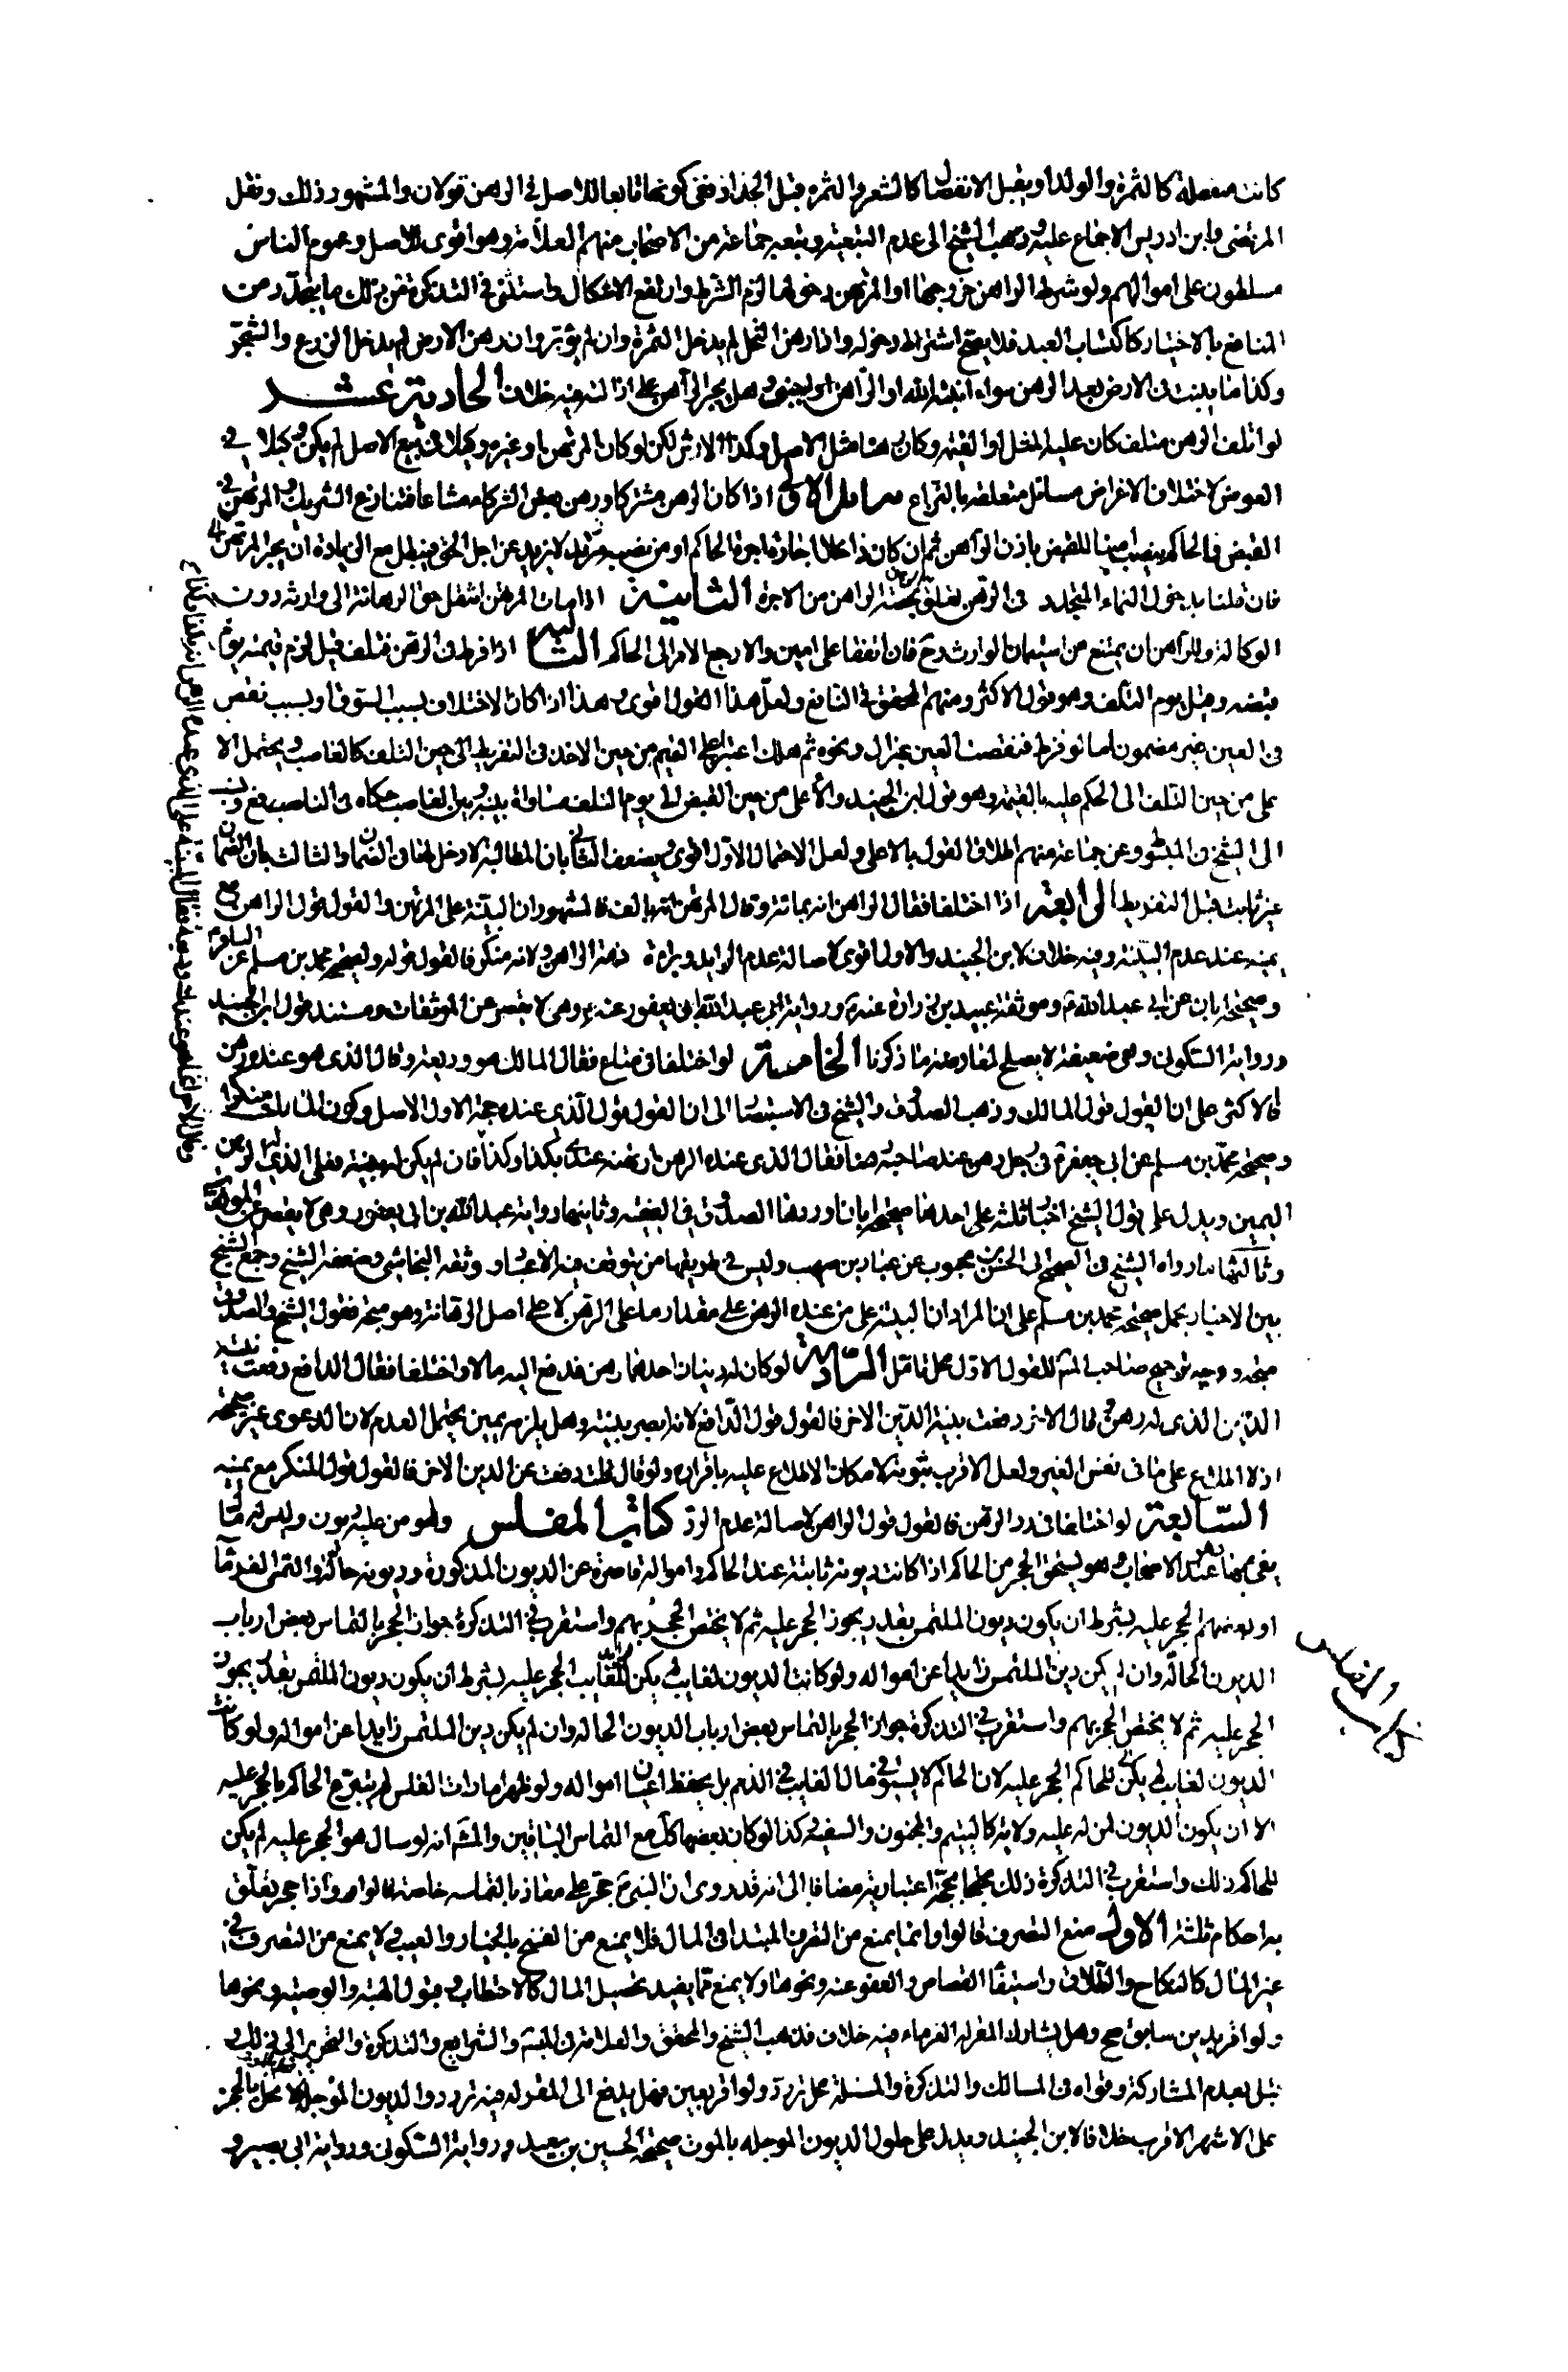 كانت منفصلة كالثمرة والولد او يقبل الانفصال كالشعر والثمره قبل الجذاذ ففي كونها تابعا للاصل في الرهن قولان والمشهور ذلك ونقل
المرتضى وابن ادريس الاجماع عليه وذهب الشيخ الى عدم التبعية وتبعه جماعة من الاصحاب منهم العلامة وهو اقوى للاصل وعموم الناس
مسلطون على اموالهم ولو شرط الراهن خروجها او المرتهن دخولها لزم الشرط وارتفع الاشكال واستثنى في التذكرة من ذلك ما يتجدد من
المنافع بالاختيار كاكتساب العبد فلا يصح اشتراط دخوله واذا رهن النخل لم يدخل الثمرة وان لم يؤبر وان رهن الارض لم يدخل الزرع والشجر
وكذا ما ينبت في الارض بعد الرهن سواء انبته الله او الراهن او اجنبي وهل يجبر الراهن على ازالته فيه خلاف الحادية عشر
لو اتلف الرهن متلف كان عليه المثل او القيمة وكان رهنا مثل الاصل وكذا الارش لكن لو كان المرتهن او غيره وكيلا في بيع الاصل لم يكن وكيلا في
العوض لاختلاف الاغراض مسائل متعلقة بالنزاع الاولى اذا كان الرهن مشتركا ورهن بعض الشركاء مشاعا فتنازع الشريك والمرتهن في
القبض فالحاكم ينصب امينا للقبض باذن الراهن ثم ان كان ذا اجرة اجره الحاكم او من نصبه مدة لا يزيد عن اجل الحق فيبطل مع الزيادة ان يجبر المرتهن
فان قلنا بدخول النماء المتجدد في الرهن تعلق بحصة الراهن من الاجرة الثانية اذا مات المرتهن انتقل حق الرهانة الى وارثه دون
الوكالة وللراهن ان يمتنع من استيمان الوارث وح فان اتفقا على امين والا رجع الامر الى الحاكم الثالثة اذا فرط في الرهن فتلف قيل لزم قيمته يوم
قبضه وقيل يوم التلف وهو قول الاكثر ومنهم المحقق في النافع ولعل هذا القول اقوى هذا اذا كان الاختلاف بسبب السوق او بسبب نقص
في العين غير مضمون اما لو فرط فنقصت العين بهزال ونحوه ثم هلك اعتبر اعلى القيم من حين الاخذ في التفريط الى حين التلف كالغاصب ويحتمل الا
على من حين التلف الى الحكم عليه بالقيمة وهو قول ابن الجنيد والاعلى من حين القبض الى يوم التلف مساواة بينه وبين الغاصب حكاه في النافع ونسب
الى الشيخ في المبسوط وعن جماعة منهم اطلاق القول بالاعلى ولعل الاحتمال الاول اقوى ويضعف الثاني بان المطالبة لا دخل لها في الضمان والثالث بان الضمان
غير ثابت قبل التفريط الرابعة اذا اختلفا فقال الراهن انه بمائة وقال المرتهن انه بالف فالمشهور ان البينة على المرتهن والقول قول الراهن مع
يمينه عند عدم البينة وفيه خلاف لابن الجنيد والاول اقوى لاصالة عدم الزايد وبراءة ذمة الراهن ولانه منكر فالقول قوله ولصحيحة محمد بن مسلم عن الباقر
وصحيحة ابان عن ابي عبد الله ع وموثقة عبيد بن زرارة عنه ع ورواية ابن عبد الله بن ابي يعفور عنه ع وهي لا تقصر عن الموثقات ومستند قول ابن الجنيد
ورواية السكوني وهي ضعيفة لا يصلح لمعارضة ما ذكرنا الخامسة لو اختلفا في متاع فقال المالك هو وديعة وقال الذي هو عنده رهن
فالاكثر على ان القول قول المالك وذهب الصدوق والشيخ في الاستبصار الى ان القول قول الذي عنده حجة الاول الاصل وكون المالك منكرا
وصحيحة محمد بن مسلم عن ابي جعفر ع في رجل رهن عند صاحبه رهنا فقال الذي عنده الرهن ارتهنته عندي بكذا وكذا فان لم يكن له بينة فعلى الذي له الرهن
اليمين ويدل على قول الشيخ اخبار ثلثة احدها صحيحة ابان اوردها الصدوق في الفقيه وثانيتها رواية عبد الله بن ابي يعفور وهي لا يقصر عن الموثقات
وثالثتها ما رواه الشيخ في الصحيح الى الحسن بن محبوب عن عباد بن صهيب وليس في طريقها من يتوقف فيه الا عباد وثقه النجاشي وضعفه الشيخ وجمع الشيخ
بين الاخبار بحمل صحيحة محمد بن مسلم على ان المراد ان البينة على من عنده الرهن على مقدار ما على الرهن لا على اصل الرهانة وهو متجه فقول الشيخ والصدوق
متجه ووجه ترجيح صاحب لك للقول الاول محل تامل السادسة لو كان له دينان احدهما رهن فدفع اليه مالا واختلفا فقال الدافع دفعت بنية
الدين الذي له رهن وقال الاخر دفعت بنية الدين الاخر فالقول قول الدافع لانه ابصر بنيته وهل يلزمه يمين يحتمل العدم لان الدعوى غير صحيحة
اذ لا اطلاع على ما في نفس الغير ولعل الاقرب ثبوته لامكان الاطلاع عليه باقراره ولو قال قلت دفعت عن الدين الاخر فالقول قول المنكر مع يمينه
السابعة لو اختلفا في رد الرهن فالقول قول الراهن لاصالة عدم الرد كتاب المفلس وهو من عليه ديون وليس له ما
يفي بها عند الاصحاب وهو يستحق الحجر من الحاكم اذا كانت ديونه ثابتة عند الحاكم واموالة قاصرة عن الديون المذكورة وديونه حالة والتمس الغرماء
او بعضهم الحجر عليه بشرط ان يكون ديون الملتمس بقدر يجوز الحجر عليه ثم لا يختص الحجر بهم واستقرب في التذكرة جواز الحجر بالتماس بعض ارباب
الديون الحالة وان لم يكن دين الملتمس زايدا عن امواله ولو كانت الديون لغايب لم يكن للغايب الحجر عليه بشرط ان يكون ديون الملتمس بقدر يجوز
الحجر عليه ثم لا يختص الحجر بهم واستقرب في التذكرة جواز الحجر بالتماس بعض ارباب الديون الحالة وان لم يكن دين الملتمس زايدا عن امواله ولو كانت
الديون لغايب لم يكن للحاكم الحجر عليه لان الحاكم لا يستوفي مال الغايب في الذمم بل يحفظ اعيان امواله ولو ظهر امارات الفلس لم يتبرع الحاكم بالحجر عليه
الا ان يكون الديون لمن له عليه ولاية كاليتيم والمجنون والسفيه وكذا لو كان بعضها كك مع التماس الباقين والمشهور انه لو سال هو الحجر عليه لم يكن
للحاكم ذلك واستقرب في التذكرة ذلك محتجا بحجة اعتبارية مضافا الى انه قد روي ان النبي ص حجر على معاذ بالتماسه خاصة قالوا واذا حجر تعلق
به احكام ثلثة الاول منع التصرف قالوا وانما يمنع من التصرف المبتدا في المال فلا يمنع من الفسخ بالخيار والعيب ولا يمنع من التصرف في
غير المال كالنكاح والطلاق واستيفاء القصاص والعفو عنه ونحوها ولا يمنع مما يفيد تحصيل المال كالاحتطاب وقبول الهبة والوصية ونحوها
ولو اقر بدين سابق صح وهل يشارك المقر له الغرماء فيه خلاف فذهب الشيخ والمحقق والعلامة في الشرايع والتذكرة والتحرير الى ذلك و
قيل بعدم المشاركة وقواه في المسالك والتذكرة والمسئلة محل تردد ولو اقر بعين فهل يدفع الى المقر له فيه تردد والديون المؤجلة لا تحل بالحجر
على الاشهر الاقرب خلافا لابن الجنيد ويدل على حلول الديون الموجله بالموت صحيحة الحسين بن سعيد ورواية السكوني ورواية ابي بصير و
كتاب المفلس